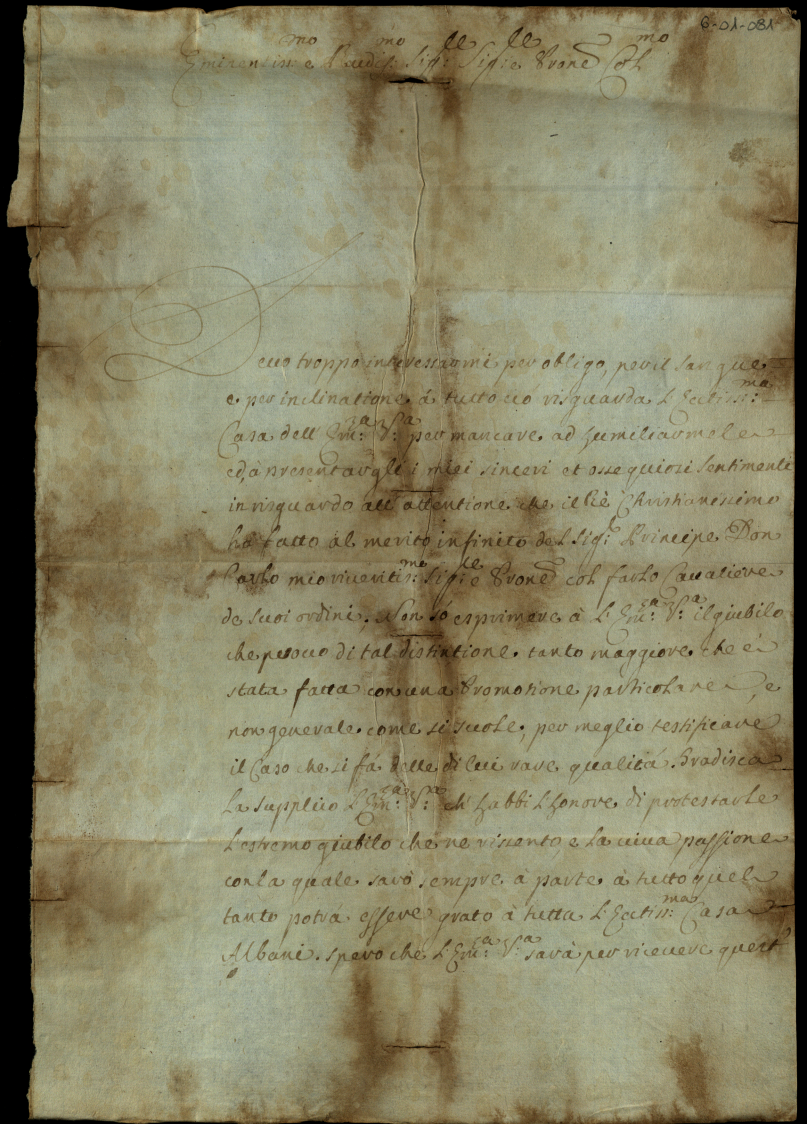 6-01-081
Eminentiss:mo e Rudis:mo Sig:re Sig:re e Prone Col:mo
Devo troppo interessarmi per obligo, per il sangue
e per inclinatione à tutto ciò risguarda L'Ecctiss:ma
Casa dell'Em:za V:ra per mancare ad humiliarmele
ed à presentargli i miei sinceri et ossequiosi sentimenti
in risguardo all'attentione che il Rè Christianissimo
hà fatto al merito infinito del Sig:r Principe Don
Carlo mio riveritis:mo Sig:re e Prone col farlo Cavaliere
de suoi ordini. Non sò esprimere à L'Em:za V:ra il giubilo
che provo di tal distintione tanto maggiore che è
stata fatta con una Promotione particolare, e
non generale come si suole, per meglio testificare
il Caso che si fà delle di lui rare qualità. Gradisca
La supplico L'Em:za V:ra ch'habbi L'honore di protestarle
L'estremo giubilo che ne rissento, e la viva passione
con la quale sarò sempre à parte à tutto quel
tanto potrà essere grato à tutta L'Ecctiss:ma Casa
Albani. Spero che L'Em:za V:ra sarà per ricevere quest'